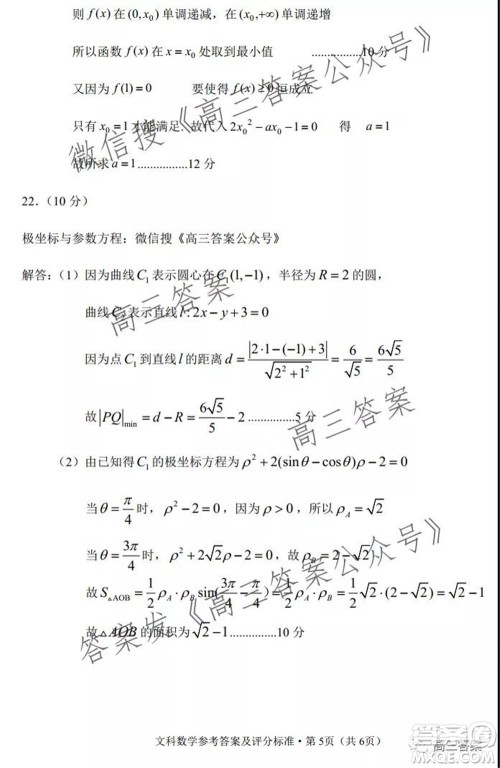 则 f(x) 在 (0, x₀) 单调递减，在 (x₀,+∞) 单调递增
所以函数 f(x) 在 x = x₀ 处取到最小值 ..............10 分
又因为 f(1) = 0 要使得 f(x) ≥ 0 恒成立
只有 x₀ = 1 才能满足，故代入 2x₀² − ax₀ − 1 = 0 得 a = 1
故所求 a = 1..............12 分
22.（10 分）
极坐标与参数方程：微信搜《高三答案公众号》
解答：（1）因为曲线 C₁ 表示圆心在 C₁(1,−1)，半径为 R = 2 的圆，
曲线 C₂ 表示直线 l: 2x − y + 3 = 0
因为点 C₁ 到直线 l 的距离 d = |2·1−(−1)+3| / √(2² + 1²) = 6/√5 = 6√5/5
故 |PQ|min = d − R = 6√5/5 − 2 ..............5 分
（2）由已知得 C₁ 的极坐标方程为 ρ² + 2(sinθ − cosθ)ρ − 2 = 0
当 θ = π/4 时，ρ² − 2 = 0，因为 ρ > 0，所以 ρA = √2
当 θ = 3π/4 时，ρ² + 2√2ρ − 2 = 0，故 ρB = 2 − √2
故 S△AOB = 1/2 ρA · ρB sin(3π/4 − π/4) = 1/2 ρA · ρB = 1/2 √2 · (2 − √2) = √2 − 1
故 △AOB 的面积为 √2 − 1..............10 分
文科数学参考答案及评分标准 · 第 5页（共 6页）
微信搜《高三答案公众号》
高三答案
高三答案
答案发《高三答案公众号》
高三答案